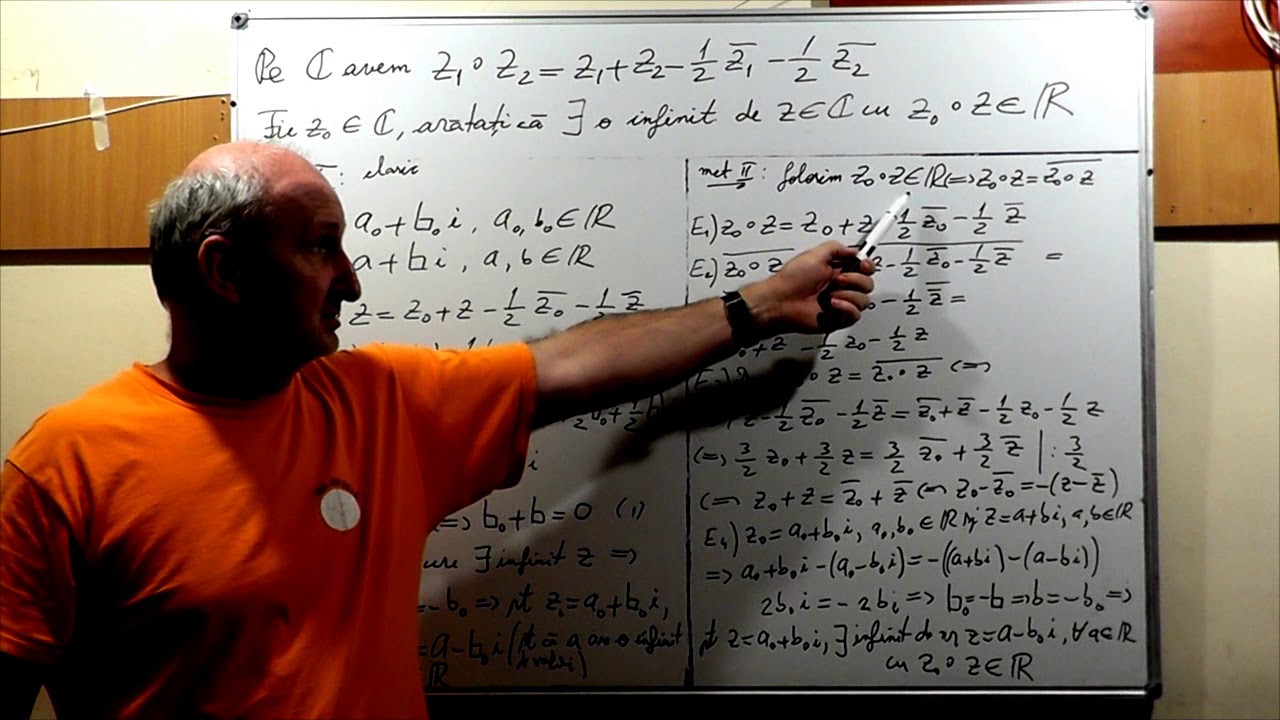 Pe ℂ avem Z₁∘Z₂ = Z₁+Z₂-½ Z̅₁ -½ Z̅₂
Fie Z₀ ∈ ℂ, aratați că ∃ o infinit de Z∈ℂ cu Z₀∘Z∈ℝ
: clasic
a₀+b₀i, a₀,b₀∈ℝ
a+bi, a,b∈ℝ
Z = Z₀+Z-½ Z̅₀ -½ Z̅
i
⟺ b₀+b=0 (1)
∃ infinit Z ⟹
-b₀ ⟹ pt Z₁=a₀+b₀i,
= a-b₀i (pt că a are o infinit
ℝ
met II: folosim Z₀∘Z∈ℝ⟺Z₀∘Z=\overline{Z₀∘Z}
E₁) Z₀∘Z = Z₀+Z ½ Z̅₀ -½ Z̅
E₂) \overline{Z₀∘Z -½ Z̅₀ -½ Z̅} =
-½ Z̅̅ =
+Z̅ -½ Z₀ -½ Z
∘Z = \overline{Z₀∘Z} ⟺
Z-½ Z̅₀ -½ Z̅ = Z̅₀+Z̅ -½ Z₀ -½ Z
⟺ 3/2 Z₀+3/2 Z = 3/2 Z̅₀+3/2 Z̅ |:3/2
⟺ Z₀+Z = Z̅₀+Z̅ ⟺ Z₀-Z̅₀=-(Z-Z̅)
E₄) Z₀=a₀+b₀i, a₀,b₀∈ℝ și Z=a+bi, a,b∈ℝ
⟹ a₀+b₀i-(a₀-b₀i)=-((a+bi)-(a-bi))
2b₀i=-2bi ⟹ b₀=-b ⟹ b=-b₀ ⟹
pt Z=a₀+b₀i, ∃ infinit de nr Z=a-b₀i, ∀a∈ℝ
cu Z₀∘Z∈ℝ